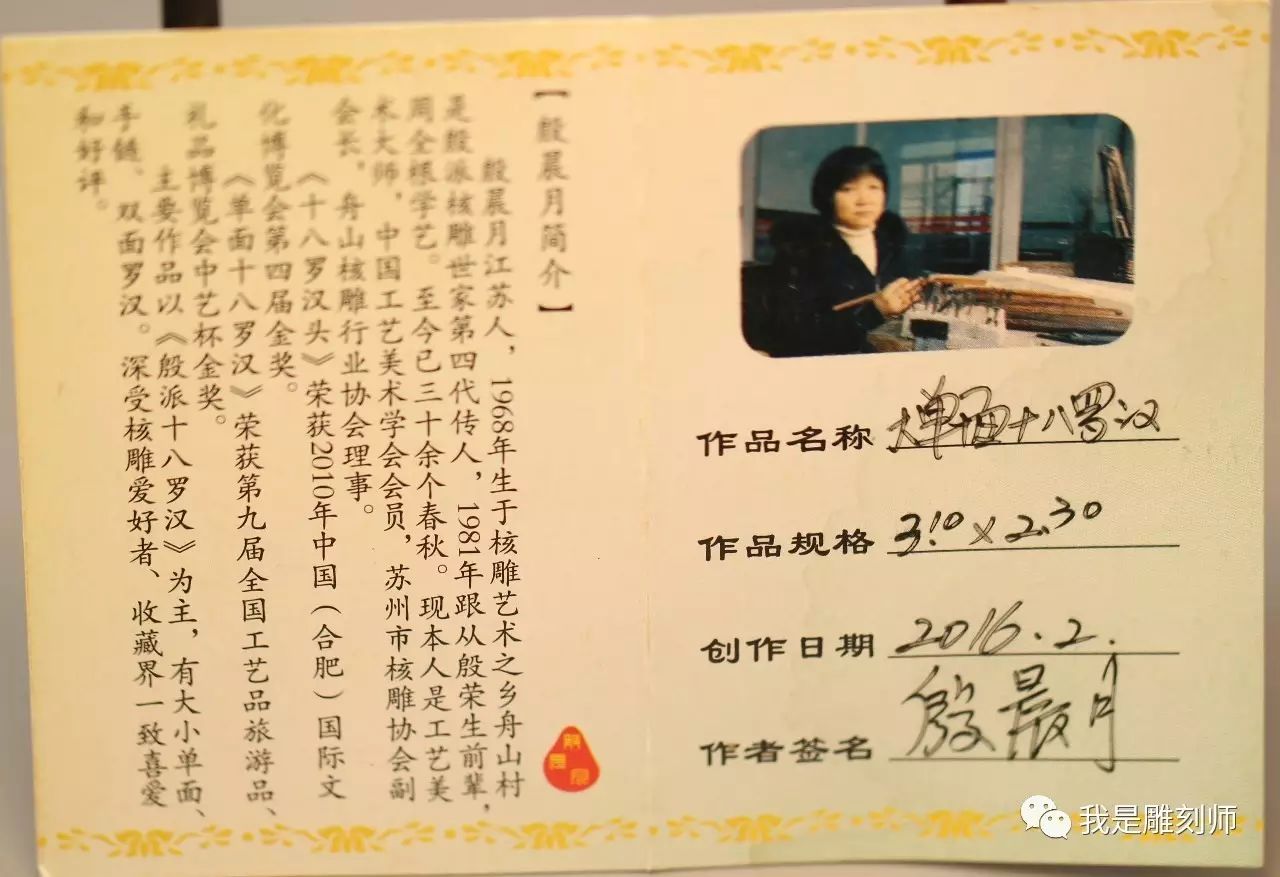 【殷晨月简介】
殷晨月江苏人，1968年生于核雕艺术之乡舟山村
是殷派核雕世家第四代传人，1981年跟从殷荣生前辈，
周全根学艺。至今已三十余个春秋。现本人是工艺美
术大师，中国工艺美术学会会员，苏州市核雕协会副
会长，舟山核雕行业协会理事。
《十八罗汉头》荣获2010年中国（合肥）国际文
化博览会第四届金奖。
《单面十八罗汉》荣获第九届全国工艺品旅游品、
礼品博览会中艺杯金奖。
主要作品以《殷派十八罗汉》为主，有大小单面、
手链、双面罗汉。深受核雕爱好者、收藏界一致喜爱
和好评。
作品名称 大单面十八罗汉
作品规格 3.10×2.30
创作日期 2016.2.
作者签名 殷晨月
我是雕刻师